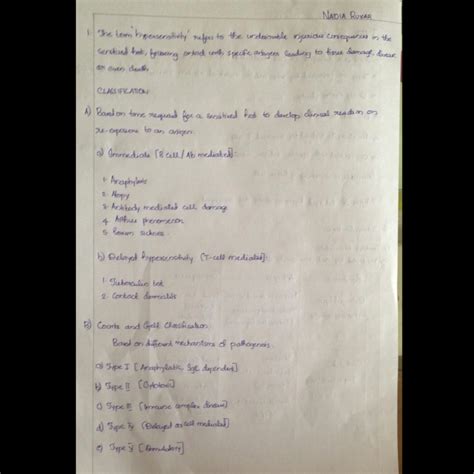 NADIA RUMAR
1. The term 'hypersensitivity' refers to the undesirable injurious consequences in the
sensitised host, following contact with specific antigens leading to tissue damage, disease
or even death.
CLASSIFICATION:
A) Based on time required for a sensitised host to develop clinical reaction on
re-exposure to an antigen.
a) Immediate [B cell / Ab mediated]:
1. Anaphylaxis
2. Atopy
3. Antibody mediated cell damage
4. Arthus phenomenon
5. Serum sickness.
b) Delayed hypersensitivity (T-cell mediated):
1. Tuberculin test
2. Contact dermatitis
B) Coombs and Gell Classification:
Based on different mechanisms of pathogenesis.
a) Type I [Anaphylactic, IgE dependent]
b) Type II [Cytotoxic]
c) Type III [Immune complex disease]
d) Type IV [Delayed or cell mediated]
e) Type V [Stimulatory]